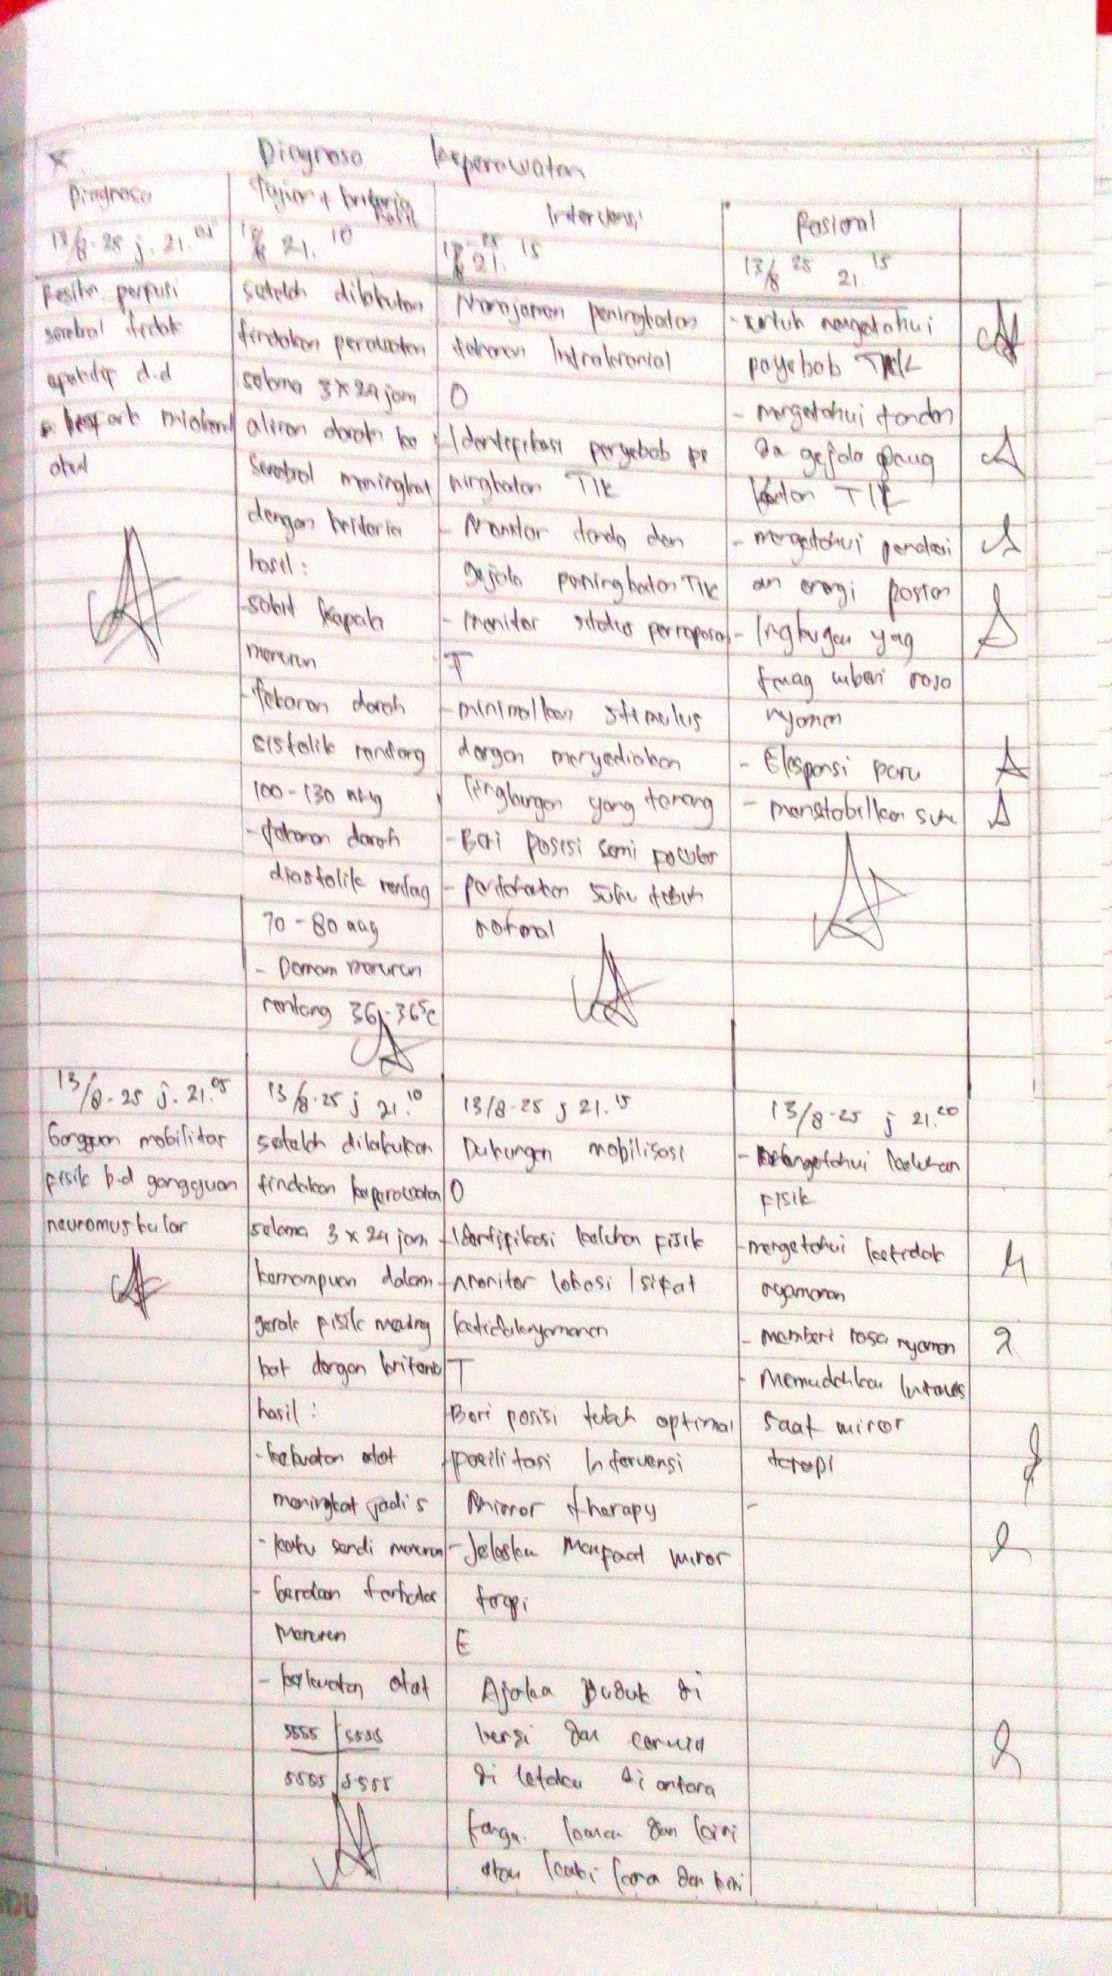 Diagnosa keperawatan
Diagnosa
13/8-25 j. 21.05
Resiko perpusi
serebral tidak
epektip d.d
akut
Tujuan + kriteria hasil
21.10
setelah dilakukan
tindakan perawatan
selama 3x24 jam
aliran darah ke
serebral meningkat
dengan kriteria
hasil:
-sakit kepala
menurun
-tekanan darah
sistolik rentang
100-130
-tekanan darah
diastolik rentag
70-80
- Demam menurun
rentang 36,-36,5c
Intervensi
21.15
Manajemen peningkatan
tekanan Intrakranial
O
-Identipikasi penyebab pe
ningkatan TIK
- Monitor tanda dan
gejala peningkatan TIK
- monitor status pernapasan
T
-minimalkan stimulus
dengan menyediakan
lingkungan yang tenang
-Beri posisi semi powler
-pertahankan suhu tubuh
normal
Rasional
13/8 25 21.15
-untuk mengetahui
payebab TIK
- mengetahui tanda
da gejala penig
katan TIK
- mengetahui
an energi pasien
- lngkugan yag
tnag mberi rasa
nyaman
- Ekspansi paru
- menstabilkan suhu
13/8-25 j. 21.05
Gangguan mobilitas
fisik b.d gangguan
neuromuskular
13/8-25 j 21.10
setelah dilakukan
tindakan keperawatan
selama 3x24 jam
kemampuan dalam
gerak pisik mening
kat dengan kriteria
hasil:
-kekuatan otot
meningkat jadi 5
-kaku sendi menurun
- gerakan terbatas
menurun
- kekuatan otot
5555 | 5555
5555 | 5555
13/8-25 j 21.15
Dukungan mobilisasi
O
-Identifikasi keluhan fisik
-monitor lokasi / sifat
ketidaknyamanan
T
Beri posisi tubuh optimal
-pasilitasi Intervensi
mirror therapy
-Jelaskn manpaat miror
trapi
E
Ajarka Duduk di
kursi dan cermin
di letakn di antara
tangn kanan dan kiri
atau kaki kana dan kiri
13/8-25 j 21.20
-mengetahui keluhan
fisik
-mengetahui ketidak
nyamanan
- memberi rasa nyaman
- Memudahkan
saat miror
terapi
-